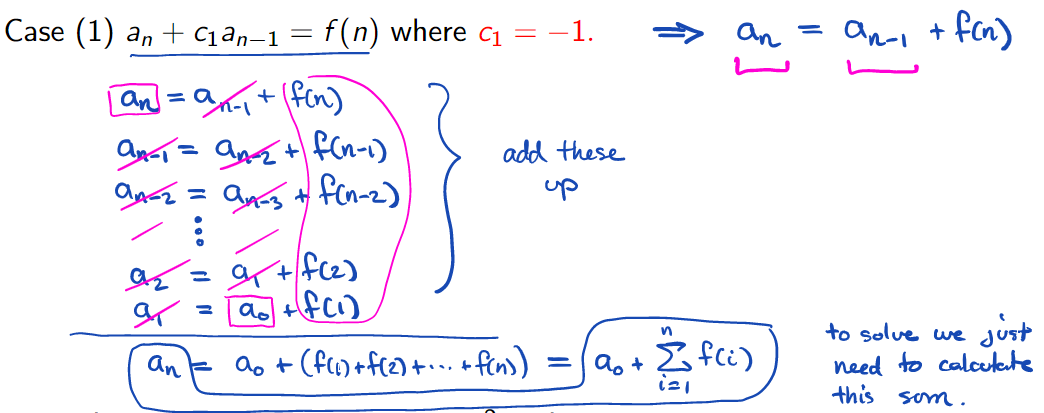 Case (1) aₙ + c₁aₙ₋₁ = f(n) where c₁ = −1. ⟹ aₙ = aₙ₋₁ + f(n)
aₙ = aₙ₋₁ + f(n)
aₙ₋₁ = aₙ₋₂ + f(n-1)
aₙ₋₂ = aₙ₋₃ + f(n-2)
⋮
a₂ = a₁ + f(2)
a₁ = a₀ + f(1)
add these
up
aₙ = a₀ + (f(1)+f(2)+⋯+f(n)) = a₀ + ∑ⁿᵢ₌₁ f(i)
to solve we just
need to calculate
this sum.